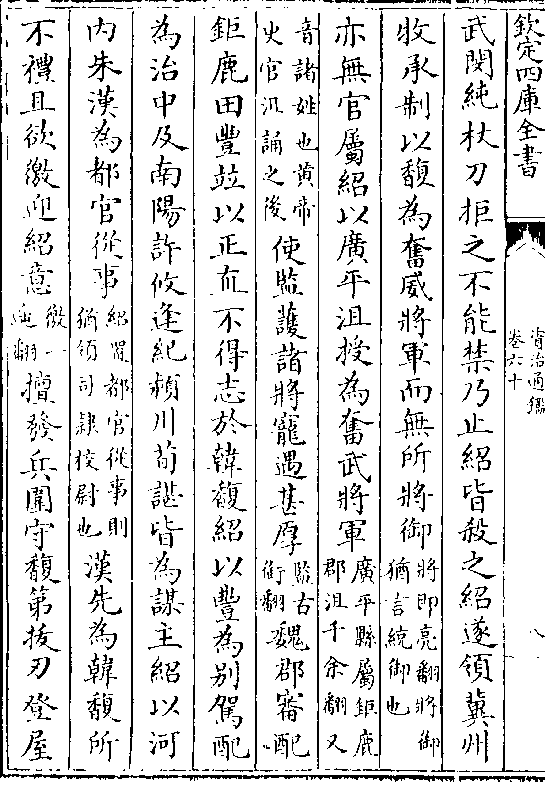 欽定四庫全書
資治通鑑
卷六十
八
武閔純杖刀拒之不能禁乃止紹皆殺之紹遂領冀州
牧承制以馥為奮威將軍而無所將御將即亮翻將御猶言統御也
亦無官屬紹以廣平沮授為奮武將軍廣平縣屬鉅鹿郡沮千余翻又
音諸姓也黄帝史官沮誦之後使監䕶諸將寵遇甚厚監古銜翻魏郡審配
鉅鹿田豐竝以正直不得志於韓馥紹以豐為别駕配
為治中及南陽許攸逢紀潁川荀諶皆為謀主紹以河
内朱漢為都官從事紹置都官從事則猶領司隸校尉也漢先為韓馥所
不禮且欲徼迎紹意徼一遥翻擅發兵圍守馥第拔刃登屋